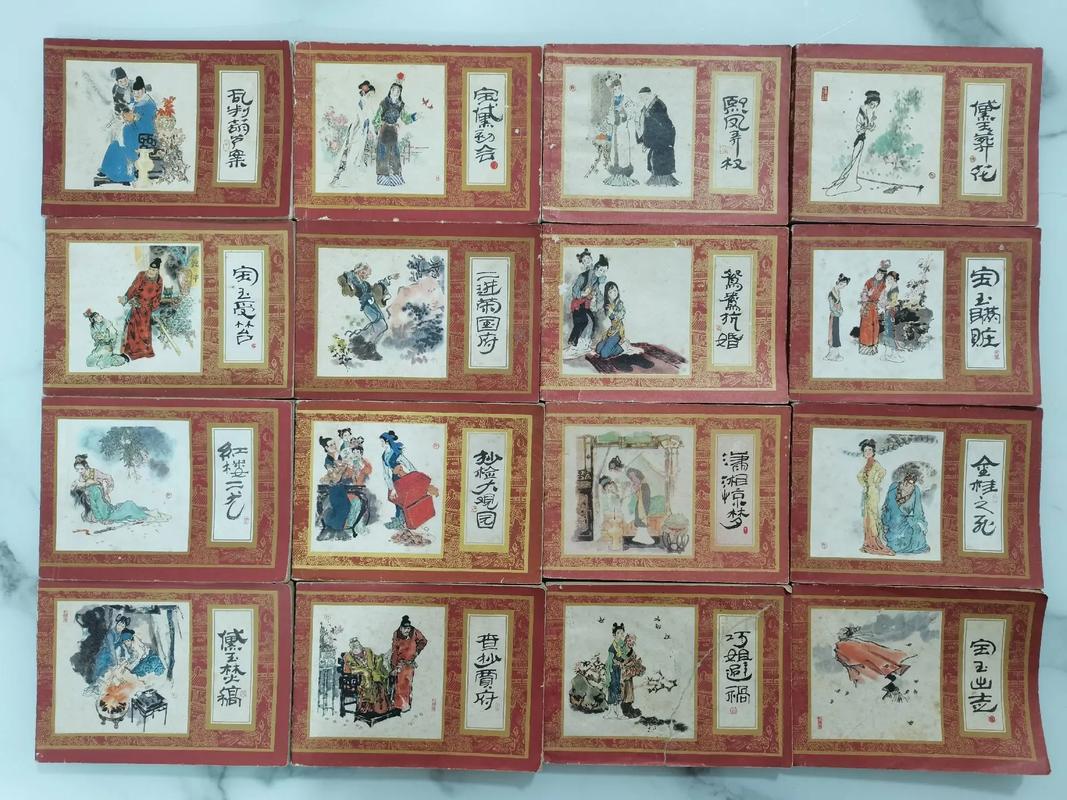 乱判葫芦案
宝黛初会
熙凤弄权
黛玉葬花
宝玉受笞
二进荣国府
鸳鸯抗婚
宝玉瞒赃
红楼二尤
抄检大观园
潇湘惊梦
金桂之死
黛玉焚稿
查抄賈府
巧姐避祸
宝玉出走